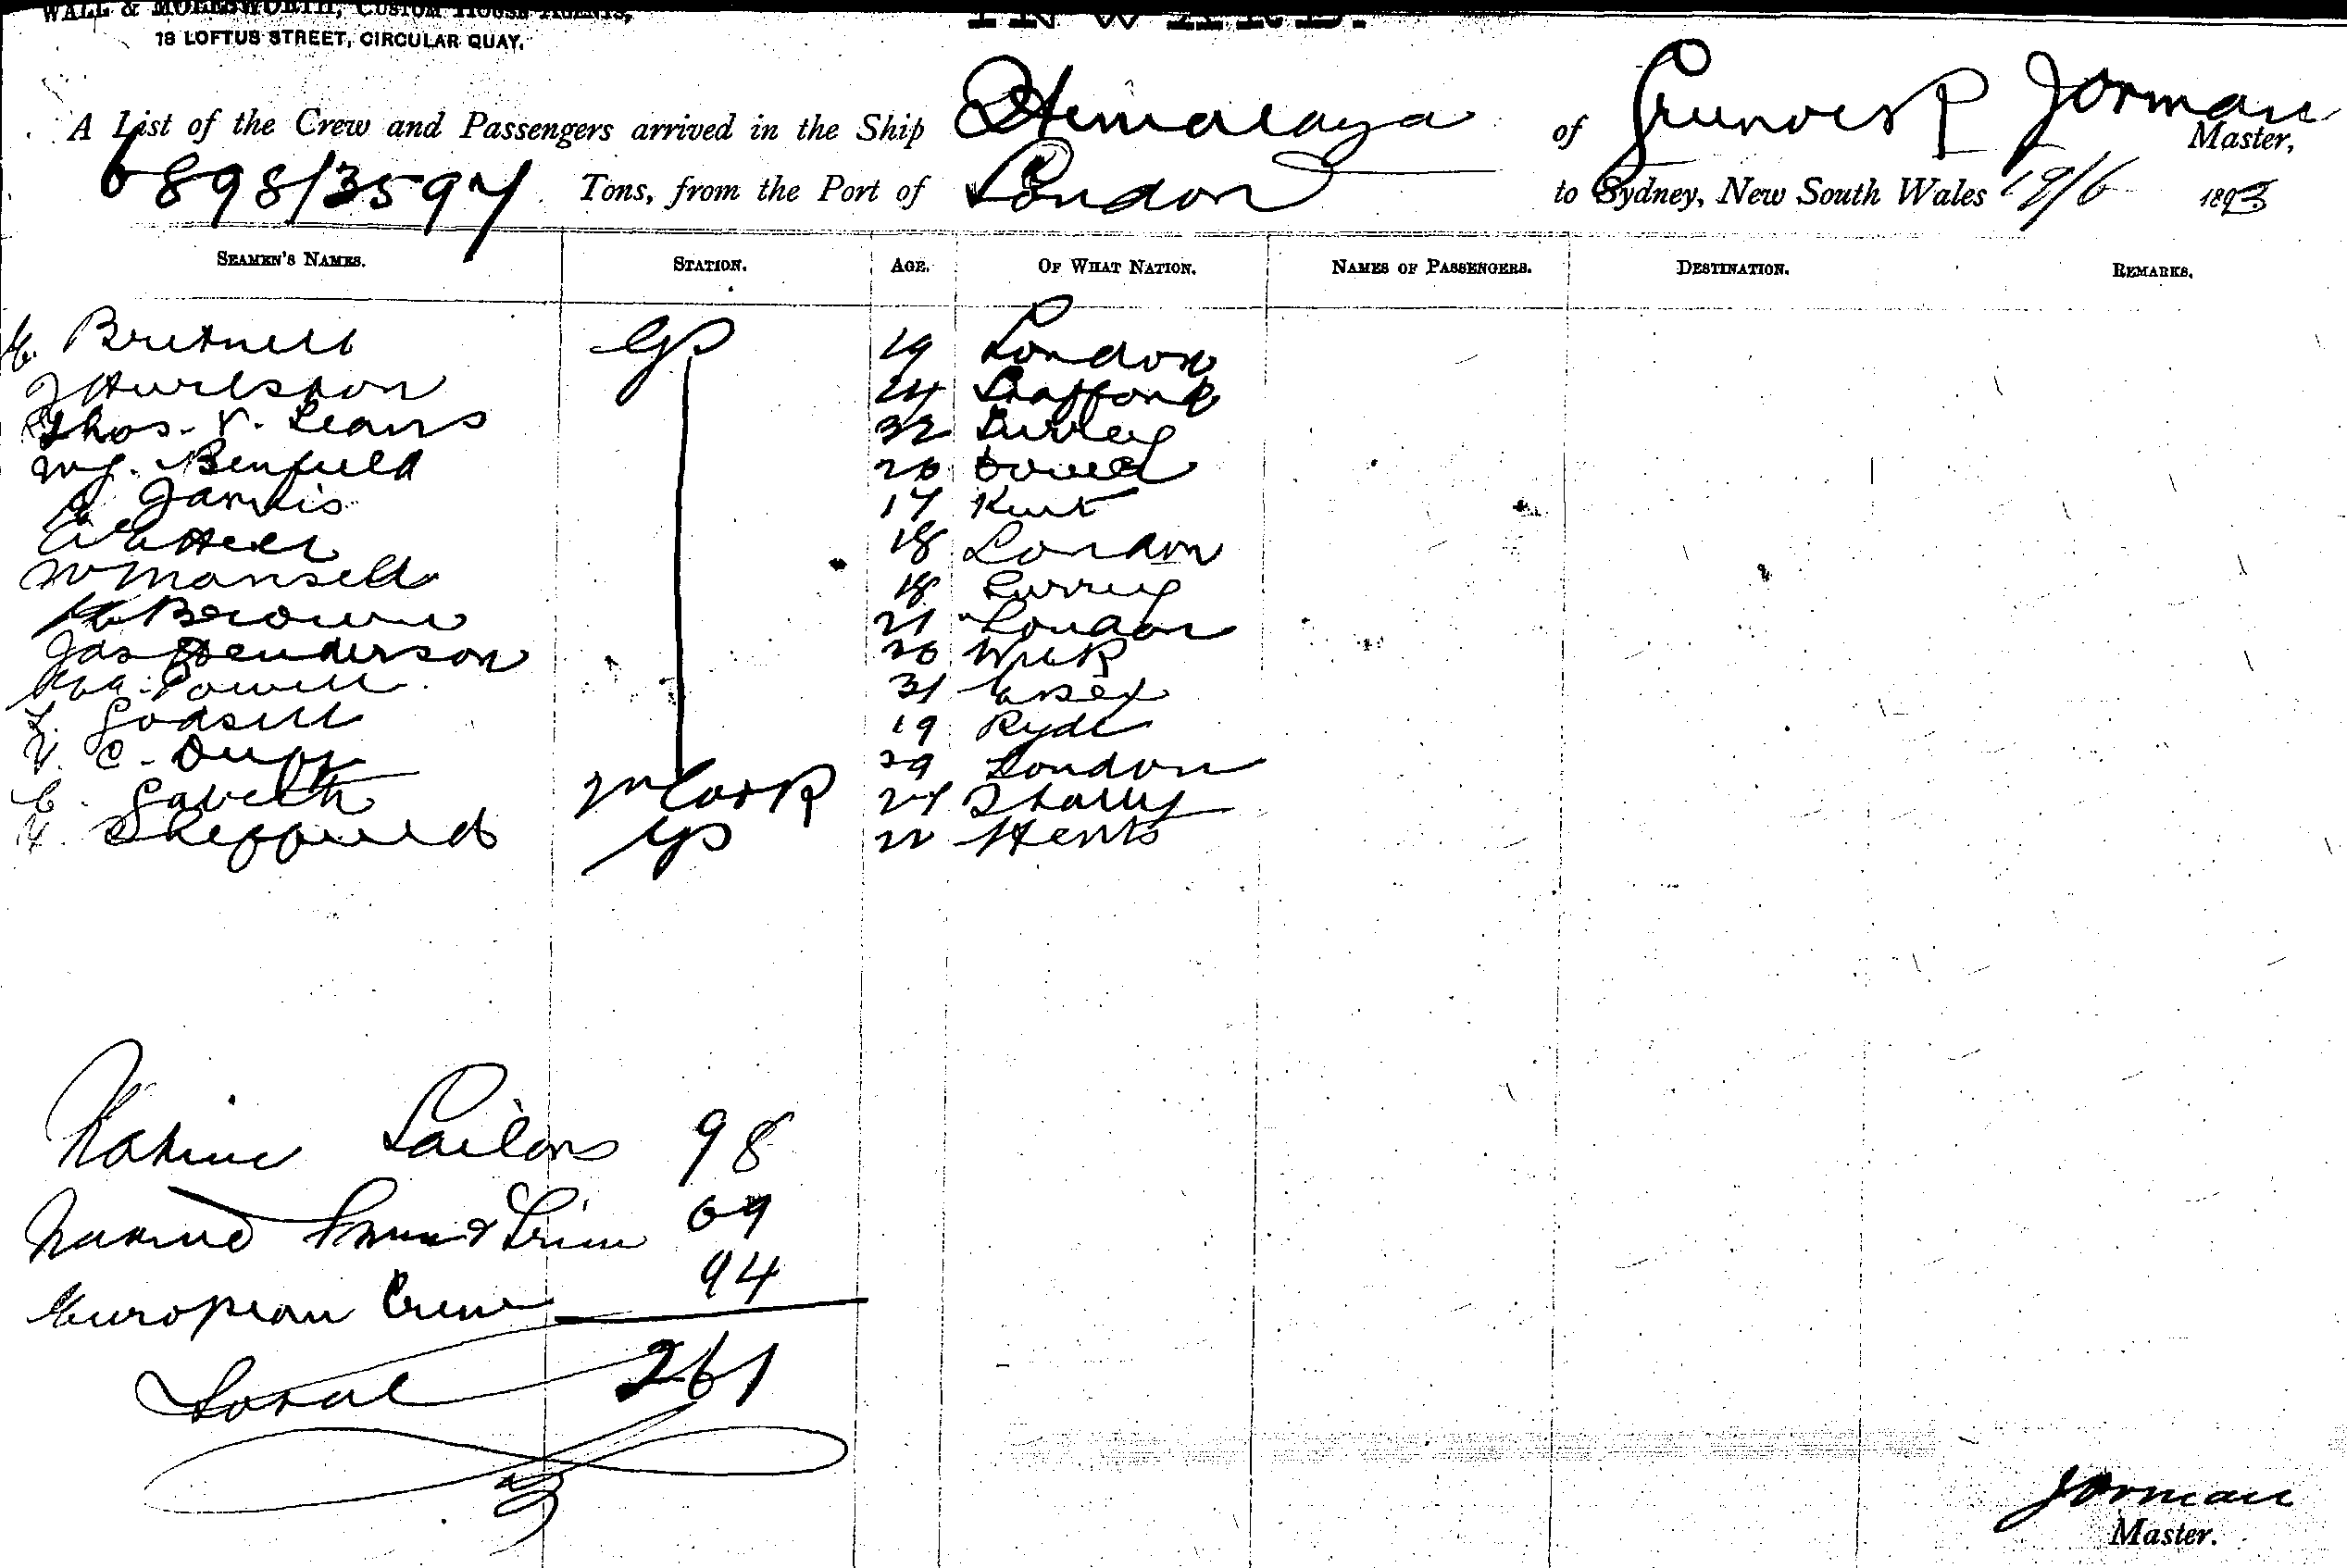 WALL & MOLESWORTH, CUSTOM HOUSE AGENTS,
18 LOFTUS STREET, CIRCULAR QUAY.
INWARD.
A List of the Crew and Passengers arrived in the Ship Himalaya of Greenock J Orman Master,
6898/3597 Tons, from the Port of London to Sydney, New South Wales 19/6 1893
SEAMEN'S NAMES. STATION. AGE. OF WHAT NATION. NAMES OF PASSENGERS. DESTINATION. REMARKS.
E. Bretnell GS 19 London
J Hurlston 24 Stafford
Thos. V. Leans 32 Surrey
W J. Benfield 20
Jarvis 17 Kent
Hill 18 London
W Mansell 18 Surrey
Brown 21 London
Jas Henderson 20 Wick
Powell 31 Essex
Godsell 19 Ryde
V. C. Duff 29 London
E. M Cook 24
H. Sheffield GS 22 Herts
Native Sailors 98
Native Firemen & Trim 69
European Crew 94
Total 261
J Orman
Master.